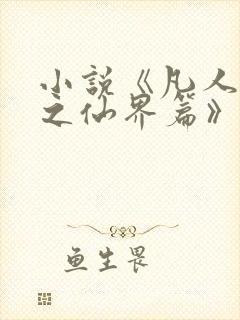 小说《凡人
之仙界篇》
鱼生畏